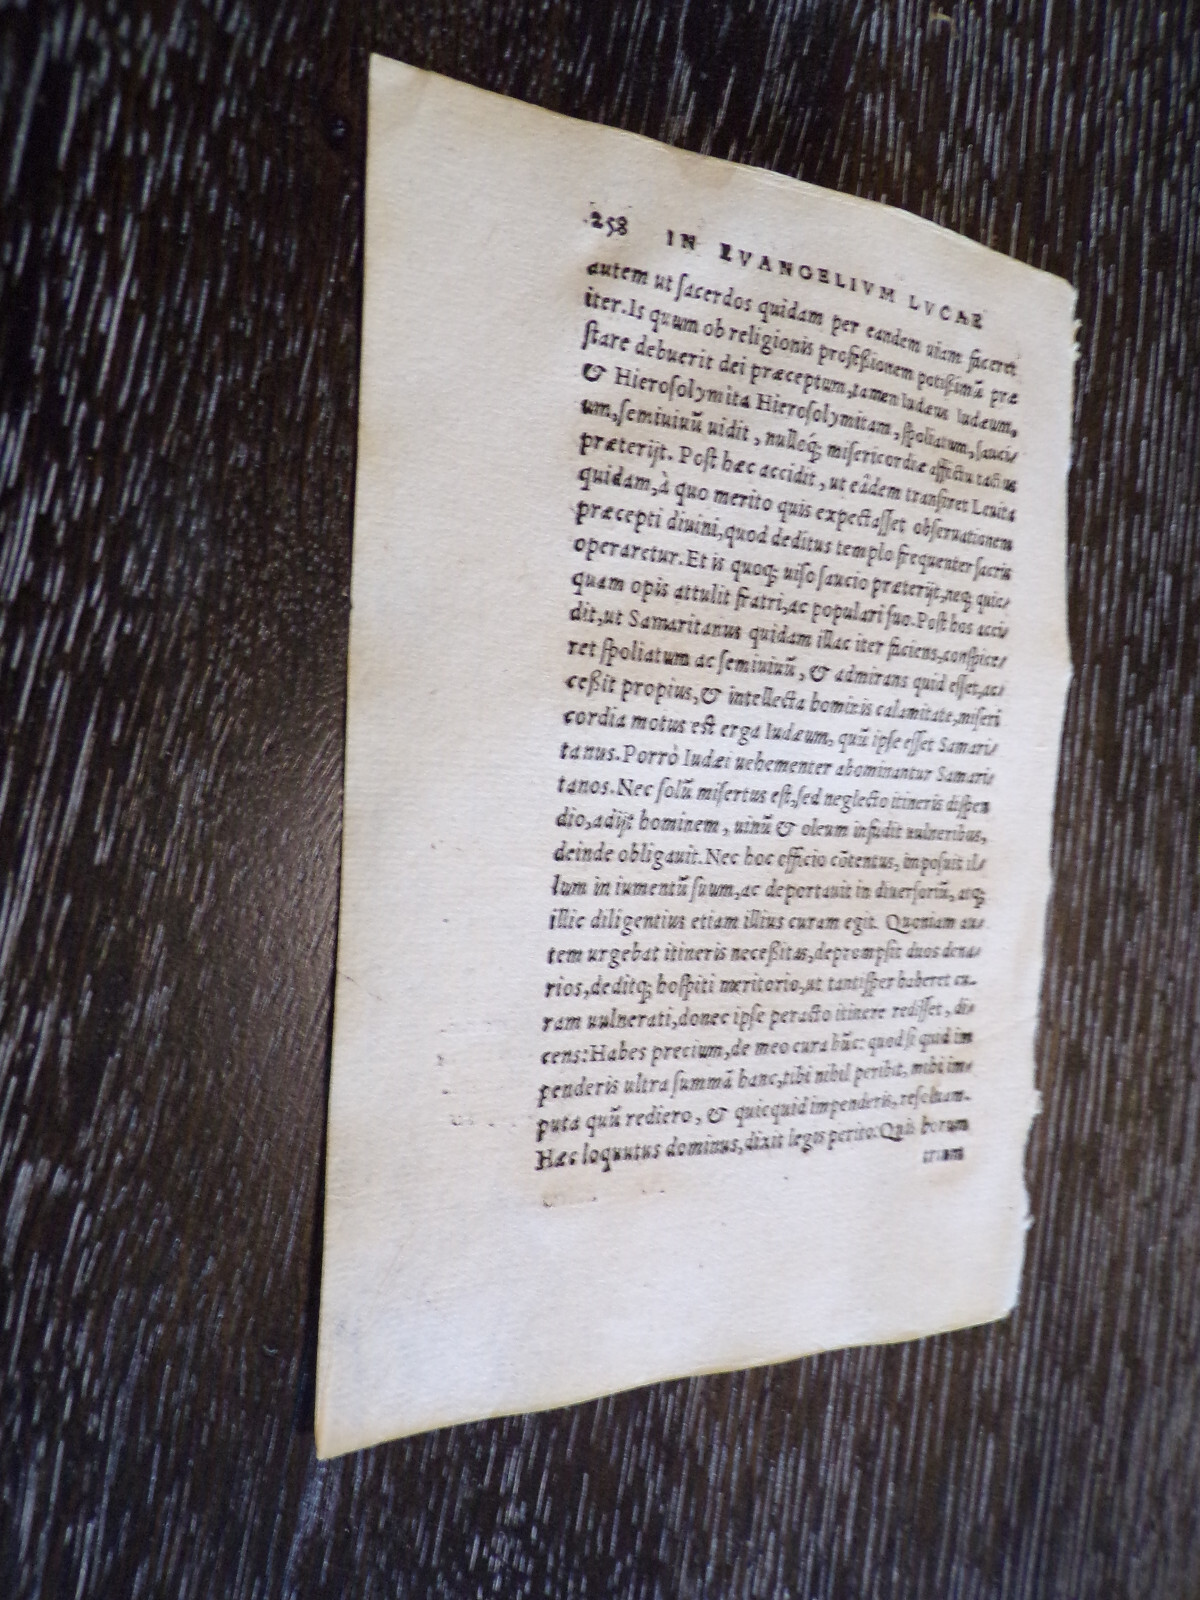 258 IN EVANGELIVM LVCAE
autem ut ſacerdos quidam per eandem uiam faceret
iter. Is quum ob religionis profeßionem potißimã præ
ſtare debuerit dei præceptum, tamen Iudæus Iudæum,
& Hieroſolymita Hieroſolymitam, ſpoliatum, ſauci/
um, ſemiuiuũ uidit, nulloq; miſericordiæ affectu tactus
præterijt. Poſt hæc accidit, ut eâdem tranſiret Leuita
quidam, à quo merito quis expectaſſet obſeruationem
præcepti diuini, quod deditus templo frequenter ſacris
operaretur. Et is quoq; uiſo ſaucio præterijt, neq; quic/
quam opis attulit fratri, ac populari ſuo. Poſt hos acci/
dit, ut Samaritanus quidam illac iter faciens, conſpice/
ret ſpoliatum ac ſemiuiuũ, & admirans quid eſſet, ac/
ceßit propius, & intellecta hominis calamitate, miſeri
cordia motus eſt erga Iudæum, quũ ipſe eſſet Samari/
tanus. Porrò Iudæi uehementer abominantur Samari/
tanos. Nec ſolũ miſertus eſt, ſed neglecto itineris diſpen
dio, adijt hominem, uinũ & oleum infudit uulneribus,
deinde obligauit. Nec hoc officio cõtentus, impoſuit il/
lum in iumentũ ſuum, ac deportauit in diuerſoriũ, atq;
illic diligentius etiam illius curam egit. Quoniam au/
tem urgebat itineris neceßitas, deprompſit duos dena/
rios, deditq; hoſpiti meritorio, ut tantiſper haberet cu-
ram uulnerati, donec ipſe peracto itinere rediſſet, di/
cens: Habes precium, de meo cura hũc: quod ſi quid im
penderis ultra ſummã hanc, tibi nihil peribit, mihi im/
puta quũ rediero, & quicquid impenderis, reſoluam.
Hæc loquutus dominus, dixit legis perito: Quis horum
trium